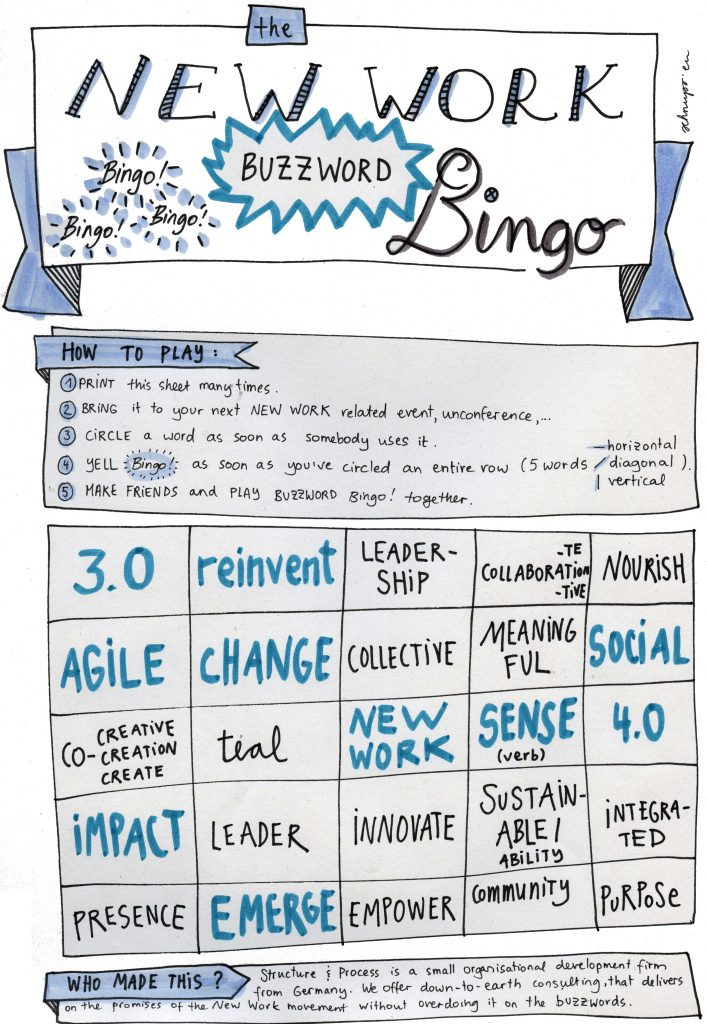 the
NEW WORK
BUZZWORD
Bingo
Bingo!
Bingo!
Bingo!
HOW TO PLAY:
1 PRINT this sheet many times.
2 BRING it to your next NEW WORK related event, unconference,...
3 CIRCLE a word as soon as somebody uses it.
4 YELL Bingo! as soon as you've circled an entire row (5 words
horizontal
diagonal ).
vertical
5 MAKE FRIENDS and PLAY BUZZWORD Bingo! together.
3.0
reinvent
LEADER-
SHIP
-TE
COLLABORATION
-TIVE
NOURISH
AGILE
CHANGE
COLLECTIVE
MEANING
FUL
SOCIAL
CO-
CREATIVE
CREATION
CREATE
teal
NEW
WORK
SENSE
(verb)
4.0
IMPACT
LEADER
INNOVATE
SUSTAIN-
ABLE/
ABILITY
INTEGRA-
TED
PRESENCE
EMERGE
EMPOWER
community
PURPOSE
WHO MADE THIS?
Structure & Process is a small organisational development firm
from Germany. We offer down-to-earth consulting, that delivers
on the promises of the New Work movement without overdoing it on the buzzwords.